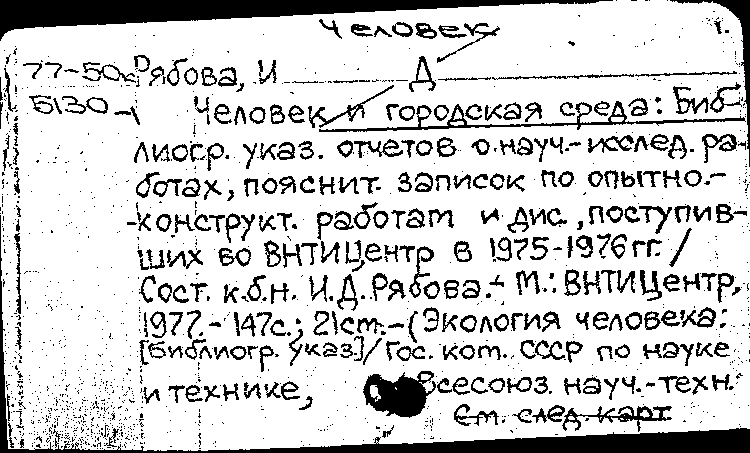 Человек
1.
77-50к Рябова, И Д
5130 Человек и городская среда: Биб-
лиогр. указ. отчетов о науч.-исслед. ра-
ботах, пояснит. записок по опытно.-
-конструкт. работам и дис., поступив-
ших во ВНТИЦентр в 1975-1976 гг. /
Сост. к.б.н. И.Д.Рябова.- М.: ВНТИЦентр,
1977.- 147с.; 21см.-(Экология человека:
[библиогр. указ]/Гос. ком. СССР по науке
и технике, Всесоюз. науч.-техн.
См. след. карт